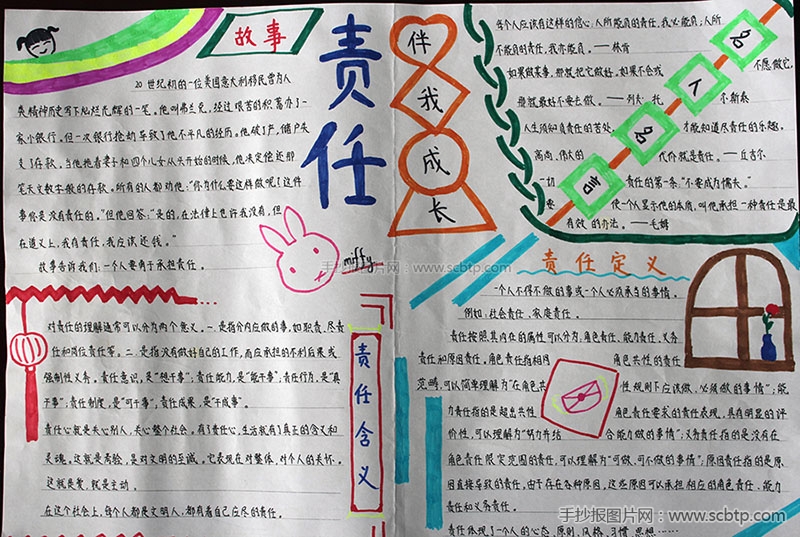 故事
20世纪初的一位美国意大利移民曾为人
类精神历史写下灿烂光辉的一笔。他叫弗兰克，经过艰苦的积蓄办了一
家小银行。但一次银行抢劫导致了他不平凡的经历。他破了产，储户失
去了存款。当他拖着妻子和四个儿女从头开始的时候，他决定偿还那
笔天文数字般的存款。所有的人都劝他：“你为什么要这样做呢？这件
事你是没有责任的。”但他回答：“是的，在法律上也许我没有，但
在道义上，我有责任，我应该还钱。”
故事告诉我们：一个人要勇于承担责任。
责任
伴我成长
miffy
名人名言
每个人应该有这样的信心：人所能负的责任，我必能负；人所
不能负的责任，我亦能负。——林肯
如果做某事，那就把它做好。如果不会或不愿做它，
那就最好不要去做。——列夫·托尔斯泰
人生须知负责任的苦处，才能知道尽责任的乐趣。
高尚、伟大的代价就是责任。——丘吉尔
一切责任的第一条：“不要成为懦夫。”
要使一个人显示他的本质，叫他承担一种责任是最
有效的办法。——毛姆
责任含义
对责任的理解通常可以分为两个意义。一是指分内应做的事，如职责、尽责
任和岗位责任等。二是指没有做好自己的工作，而应承担的不利后果或
强制性义务。责任意识，是“想干事”；责任能力，是“能干事”；责任行为，是“真
干事”；责任制度，是“可干事”；责任成果，是“干成事”。
责任心就是关心别人，关心整个社会。有了责任心，生活就有了真正的含义和
灵魂。这就是考验，是对文明的至诚。它表现在对整体，对个人的关怀。
这就是爱，就是主动。
在这个社会上，每个人都是文明人，都有着自己应尽的责任。
责任定义
一个人不得不做的事或一个人必须承当的事情。
例如：社会责任、家庭责任。
责任按照其内在的属性可以分为：角色责任、能力责任、义务
责任和原因责任。角色责任指相同角色共性的责任
范畴，可以简单理解为“在角色共性规则下应该做，必须做的事情”；能
力责任指的是超出共性角色责任要求的责任表现，具有明显的评
价性，可以理解为“努力并结合能力做的事情”；义务责任指的是没有在
角色责任限定范围的责任，可以理解为“可做，可不做的事情”；原因责任指的是原
因直接导致的责任，由于存在各种原因，这些原因可以承担相应的角色责任、能力
责任和义务责任。
责任体现了一个人的心态、原则、风格、习惯、思想……
手抄报图片网：www.scbtp.com
手抄报图片网 www.scbtp.com